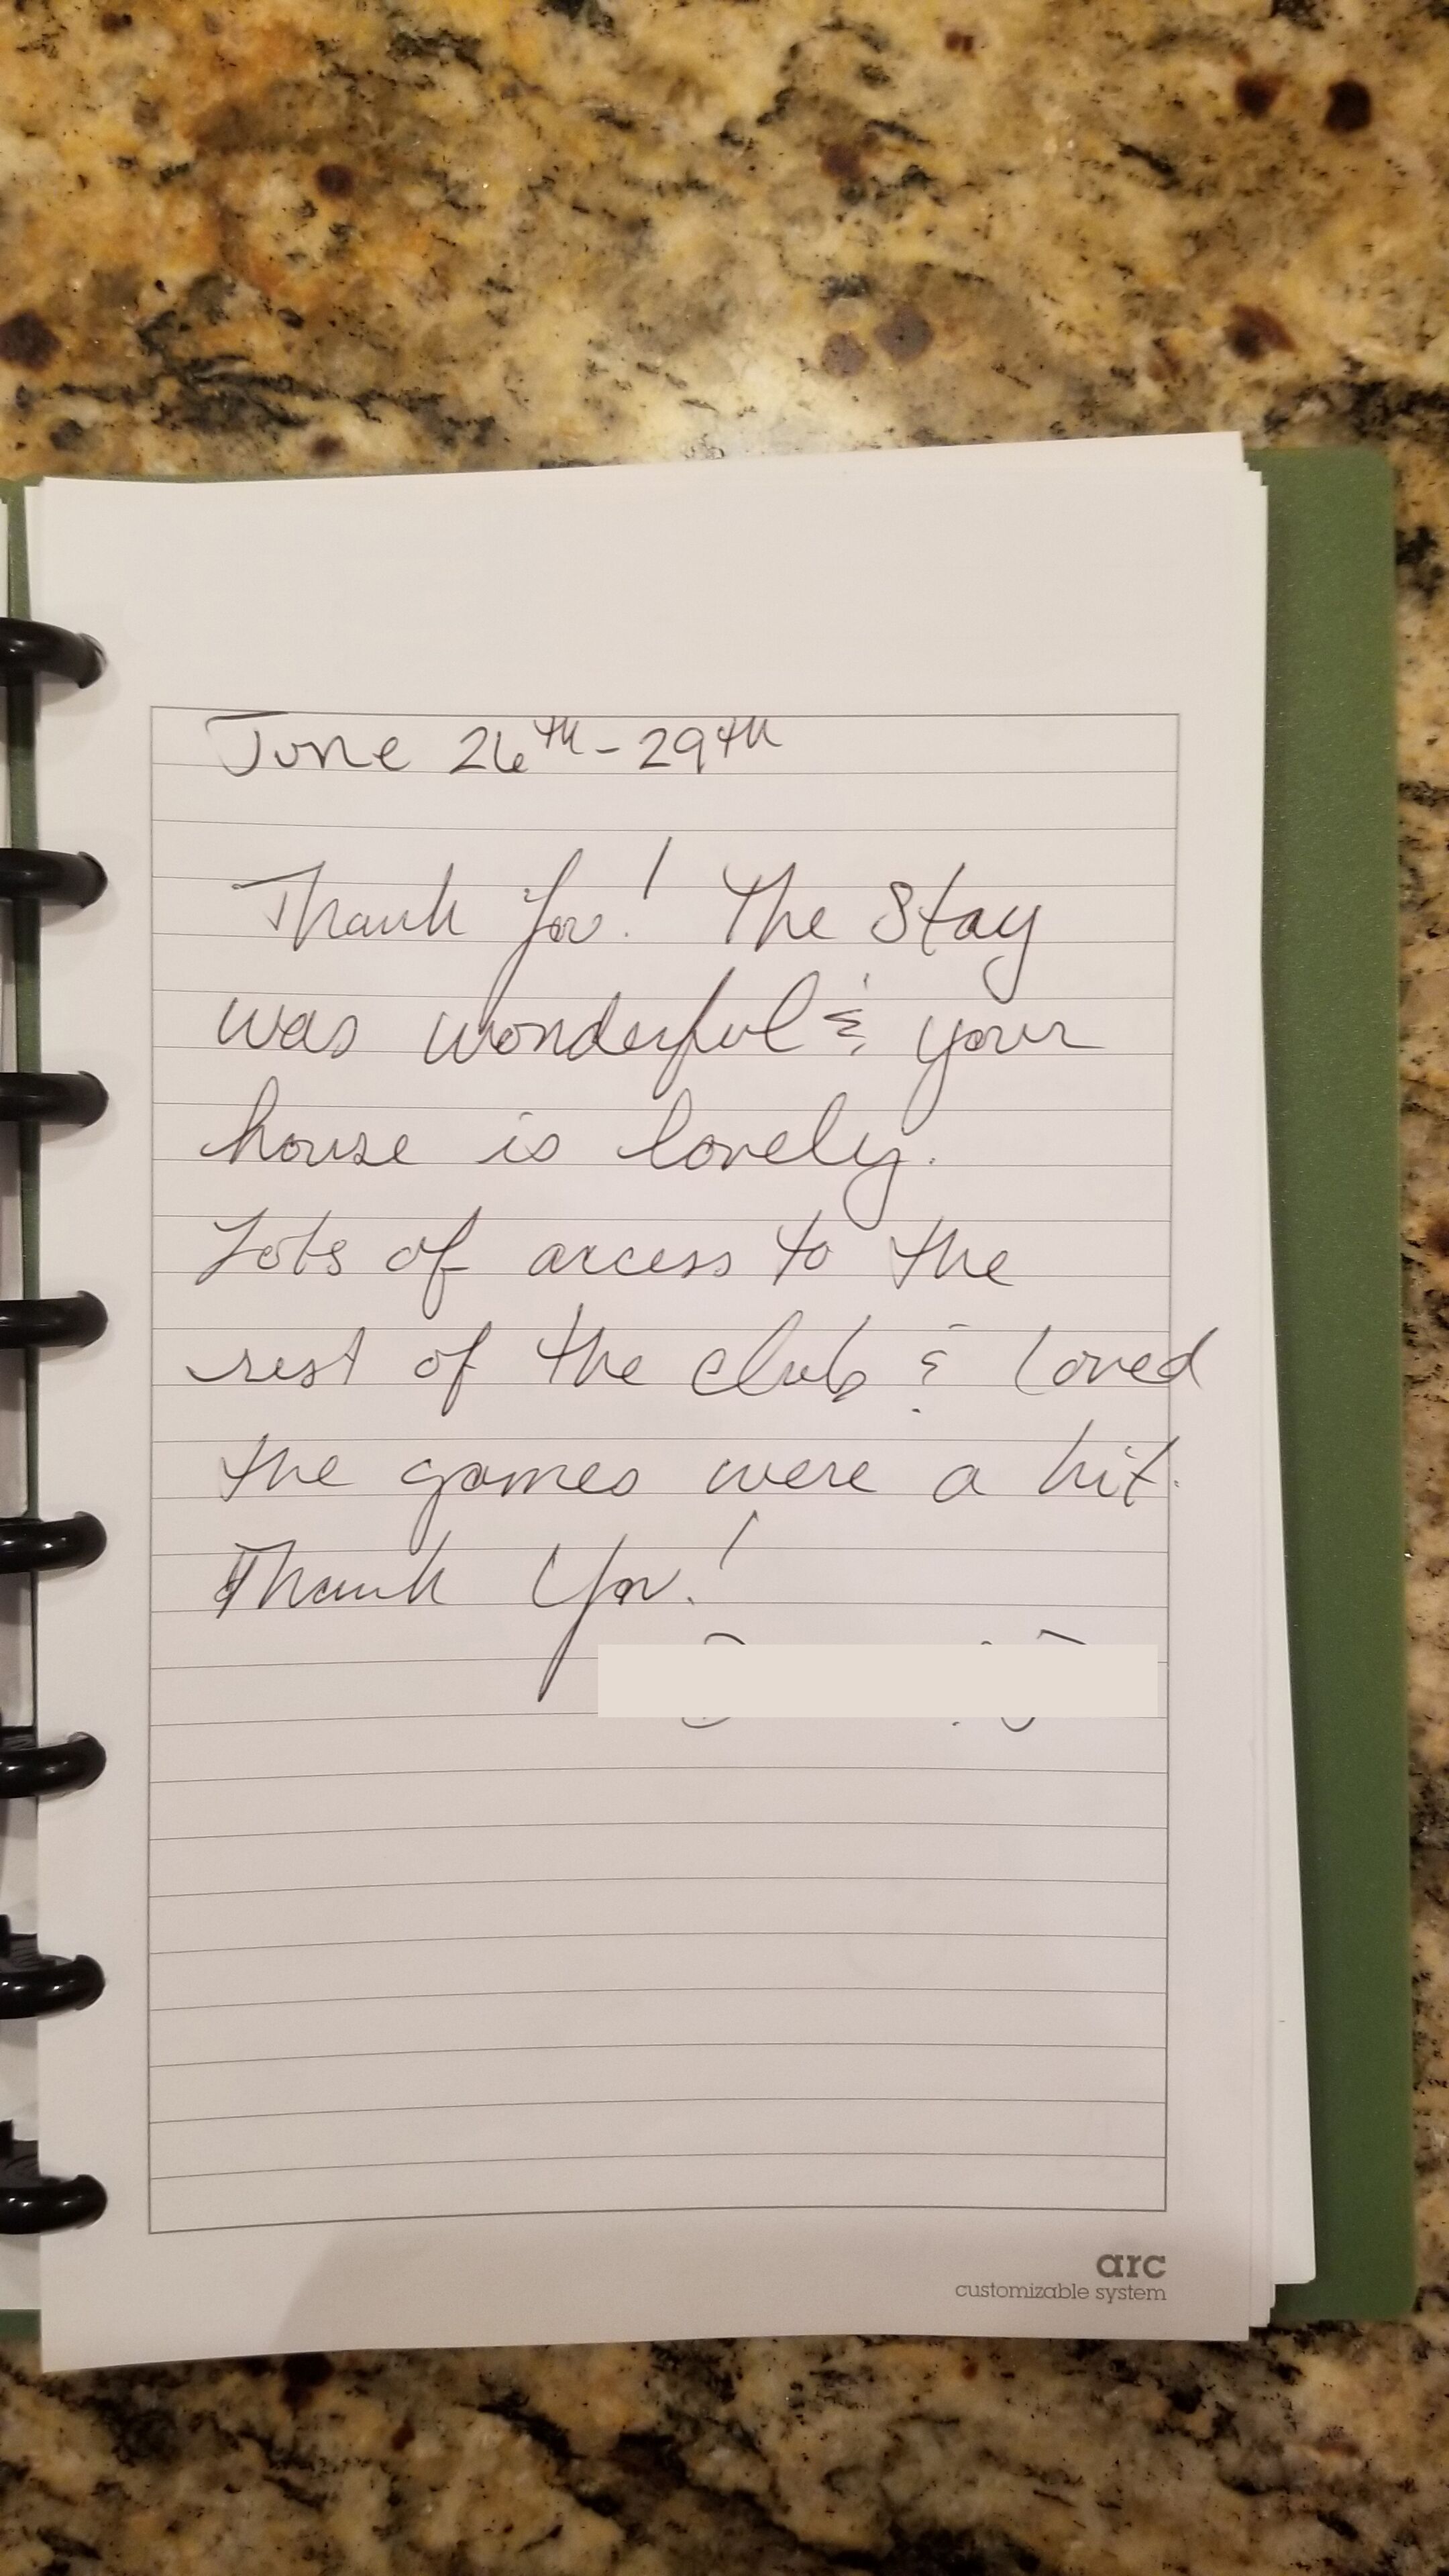 June 26th - 29th
Thank you! The Stay
was wonderful & your
house is lovely.
Lots of access to the
rest of the club & loved
the games were a hit.
Thank You!
arc
customizable system